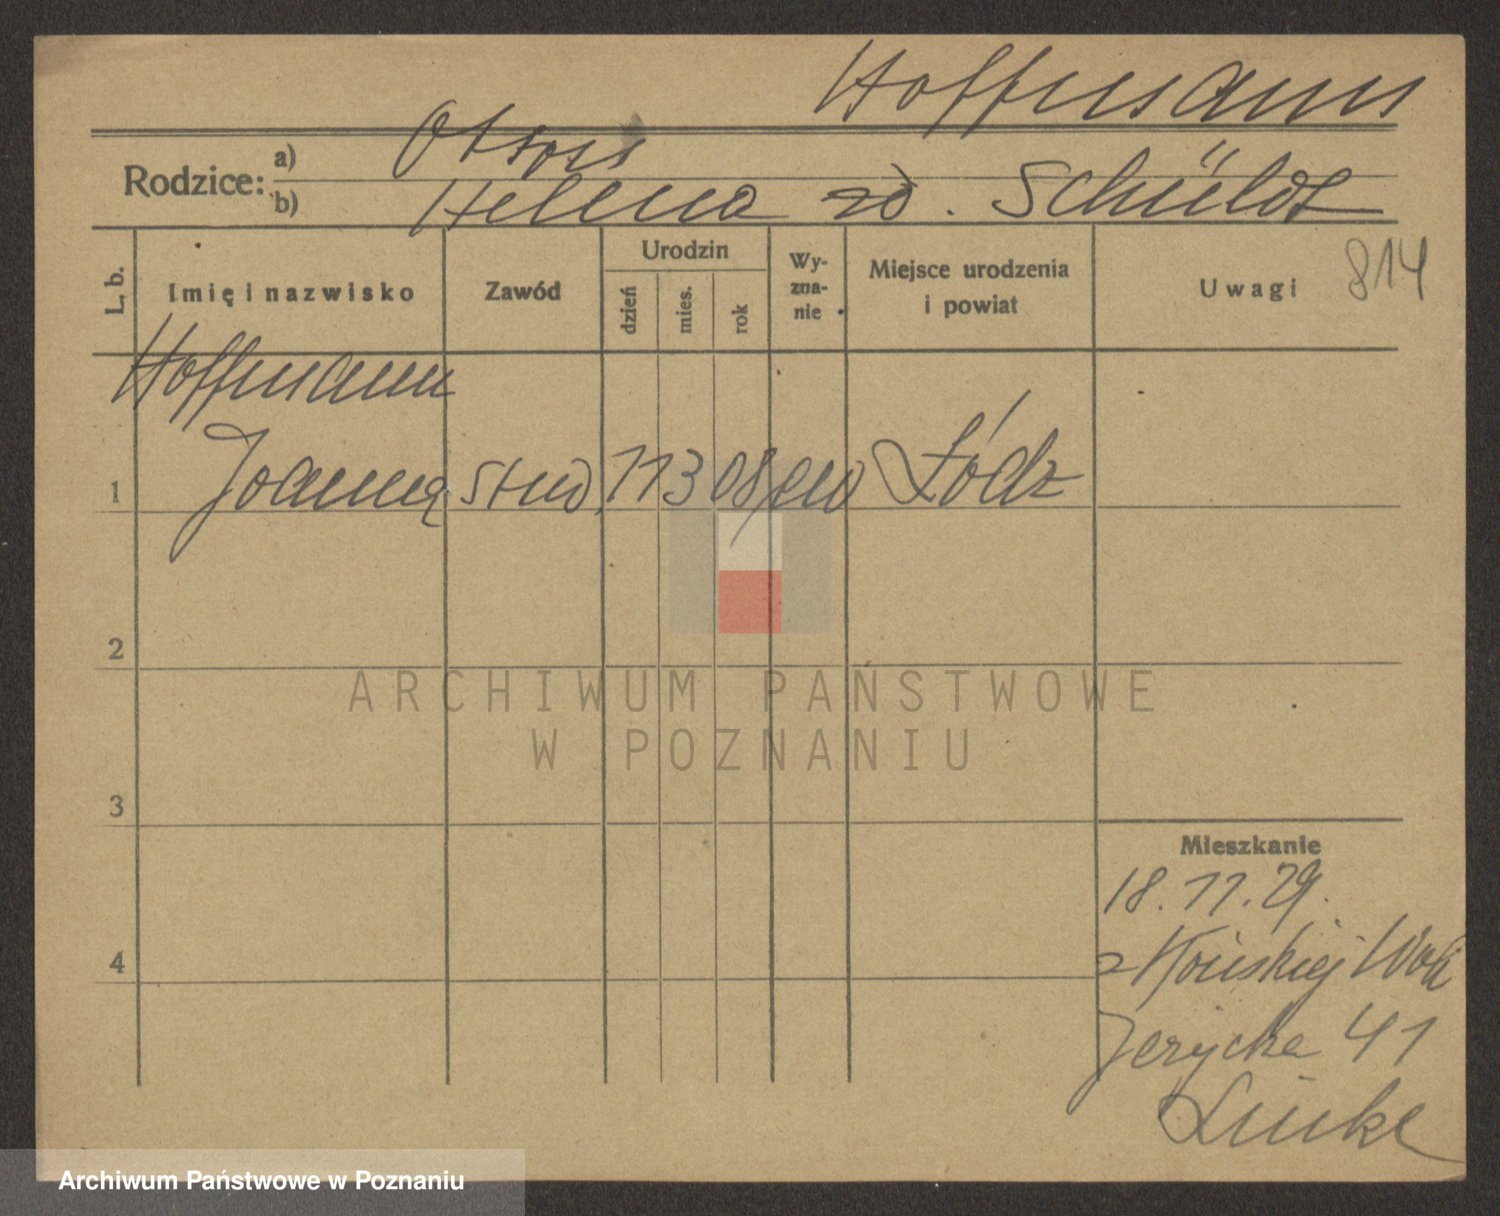 Hoffmann
Rodzice: a) Otton
b) Helena zd. Schüldt
L. b. Imię i nazwisko Zawód Urodzin dzień mies. rok Wyznanie Miejsce urodzenia i powiat Uwagi 814
Hoffmann
1 Joanna stud. 11 3 08 ew Łódź
2
3
4
Mieszkanie
18.11.29.
z Końskiej Woli
Jeżycka 41
Linke
ARCHIWUM PAŃSTWOWE
W POZNANIU
Archiwum Państwowe w Poznaniu